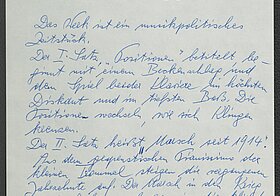 Das Werk ist ein musikpolitisches
Zeitstück.
Der I. Satz, "Positionen" betitelt be-
ginnt mit einem Beckenschlag und
dem Spiel beider Klaviere im höchsten
Diskant und im tiefsten Baß. Die
Positionen wechseln, wie sich Klingen
kreuzen.
Der II. Satz heißt "Marsch seit 1914".
Aus dem gespenstischen Pianissimo der
kleinen Trommel steigen die vergangenen
Jahrzehnte auf. Der Marsch in den Krieg